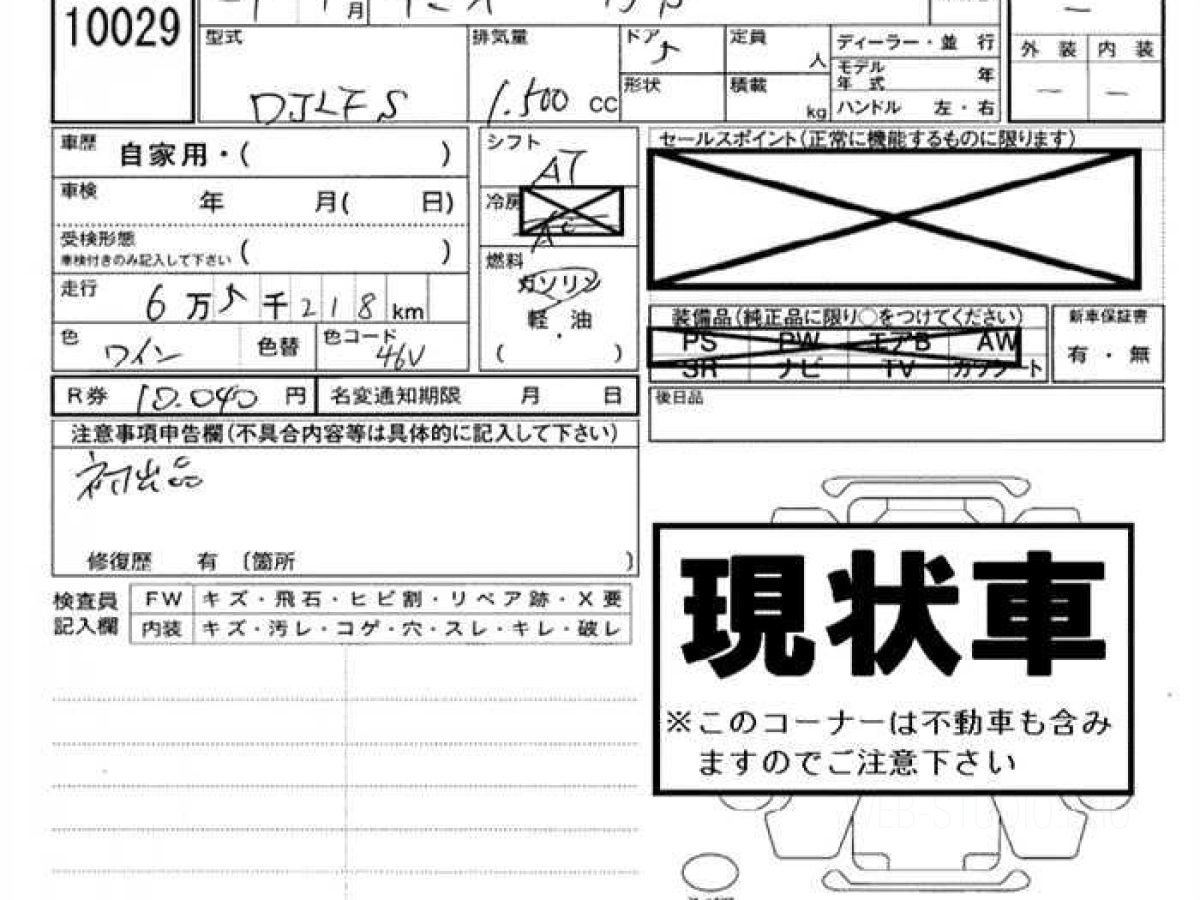 10029
月
型式
DJLFS
排気量
1.500 cc
ドア
形状
定員 人
積載 kg
ディーラー・並 行
モデル年式 年
ハンドル 左・右
外 装 内 装
— —
車歴 自家用・( )
車検 年 月( 日)
受検形態 ( )
車検付きのみ記入して下さい
走行 6万 千218km
色 ワイン 色替
色コード 46V
シフト AT
冷房
燃料
ガソリン
軽・油
( )
セールスポイント(正常に機能するものに限ります)
装備品(純正品に限り○をつけてください)
PS PW エアB AW
SR ナビ TV カワシート
新車保証書
有・無
R券 10.040 円 名変通知期限 月 日
後日品
注意事項申告欄(不具合内容等は具体的に記入して下さい)
初出品
修復歴 有 〔箇所 〕
検査員記入欄
FW キズ・飛石・ヒビ割・リペア跡・X要
内装 キズ・汚レ・コゲ・穴・スレ・キレ・破レ
現状車
※このコーナーは不動車も含み
ますのでご注意下さい